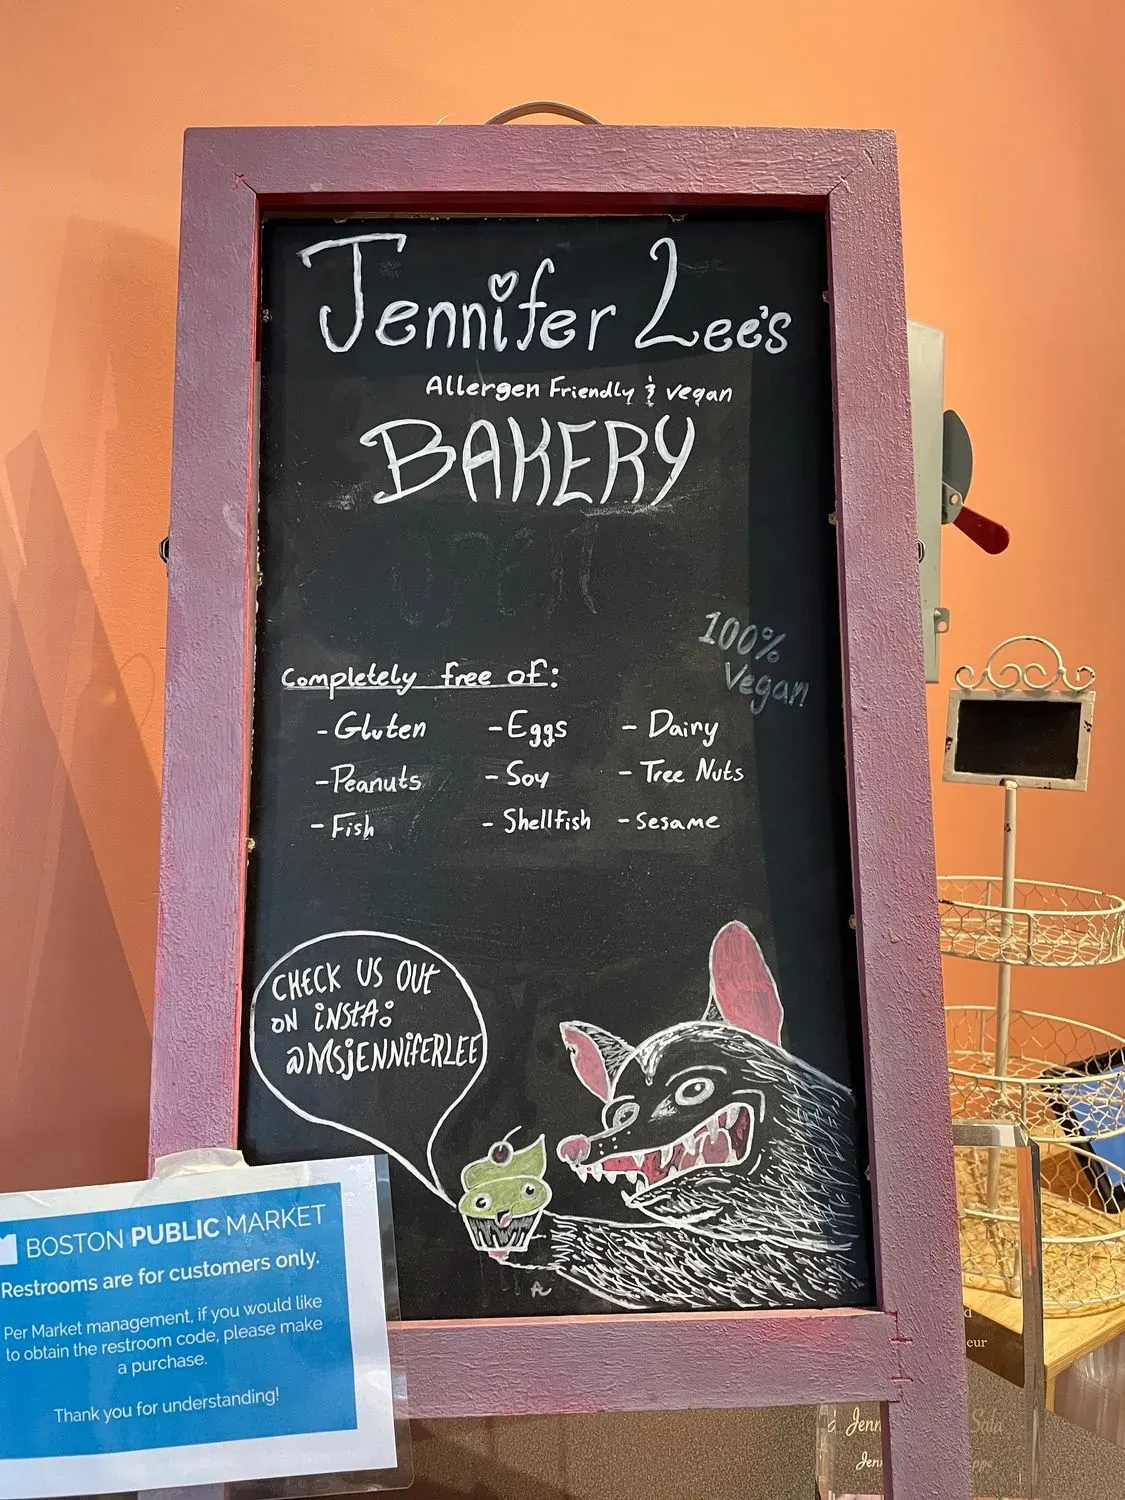 Jennifer Lee's
Allergen Friendly & vegan
BAKERY
100%
Vegan
Completely free of:
- Gluten - Eggs - Dairy
- Peanuts - Soy - Tree Nuts
- Fish - Shellfish - Sesame
CHECK US OUT
ON iNStA:
@MSjENNifERLEE
BOSTON PUBLIC MARKET
Restrooms are for customers only.
Per Market management, if you would like
to obtain the restroom code, please make
a purchase.
Thank you for understanding!